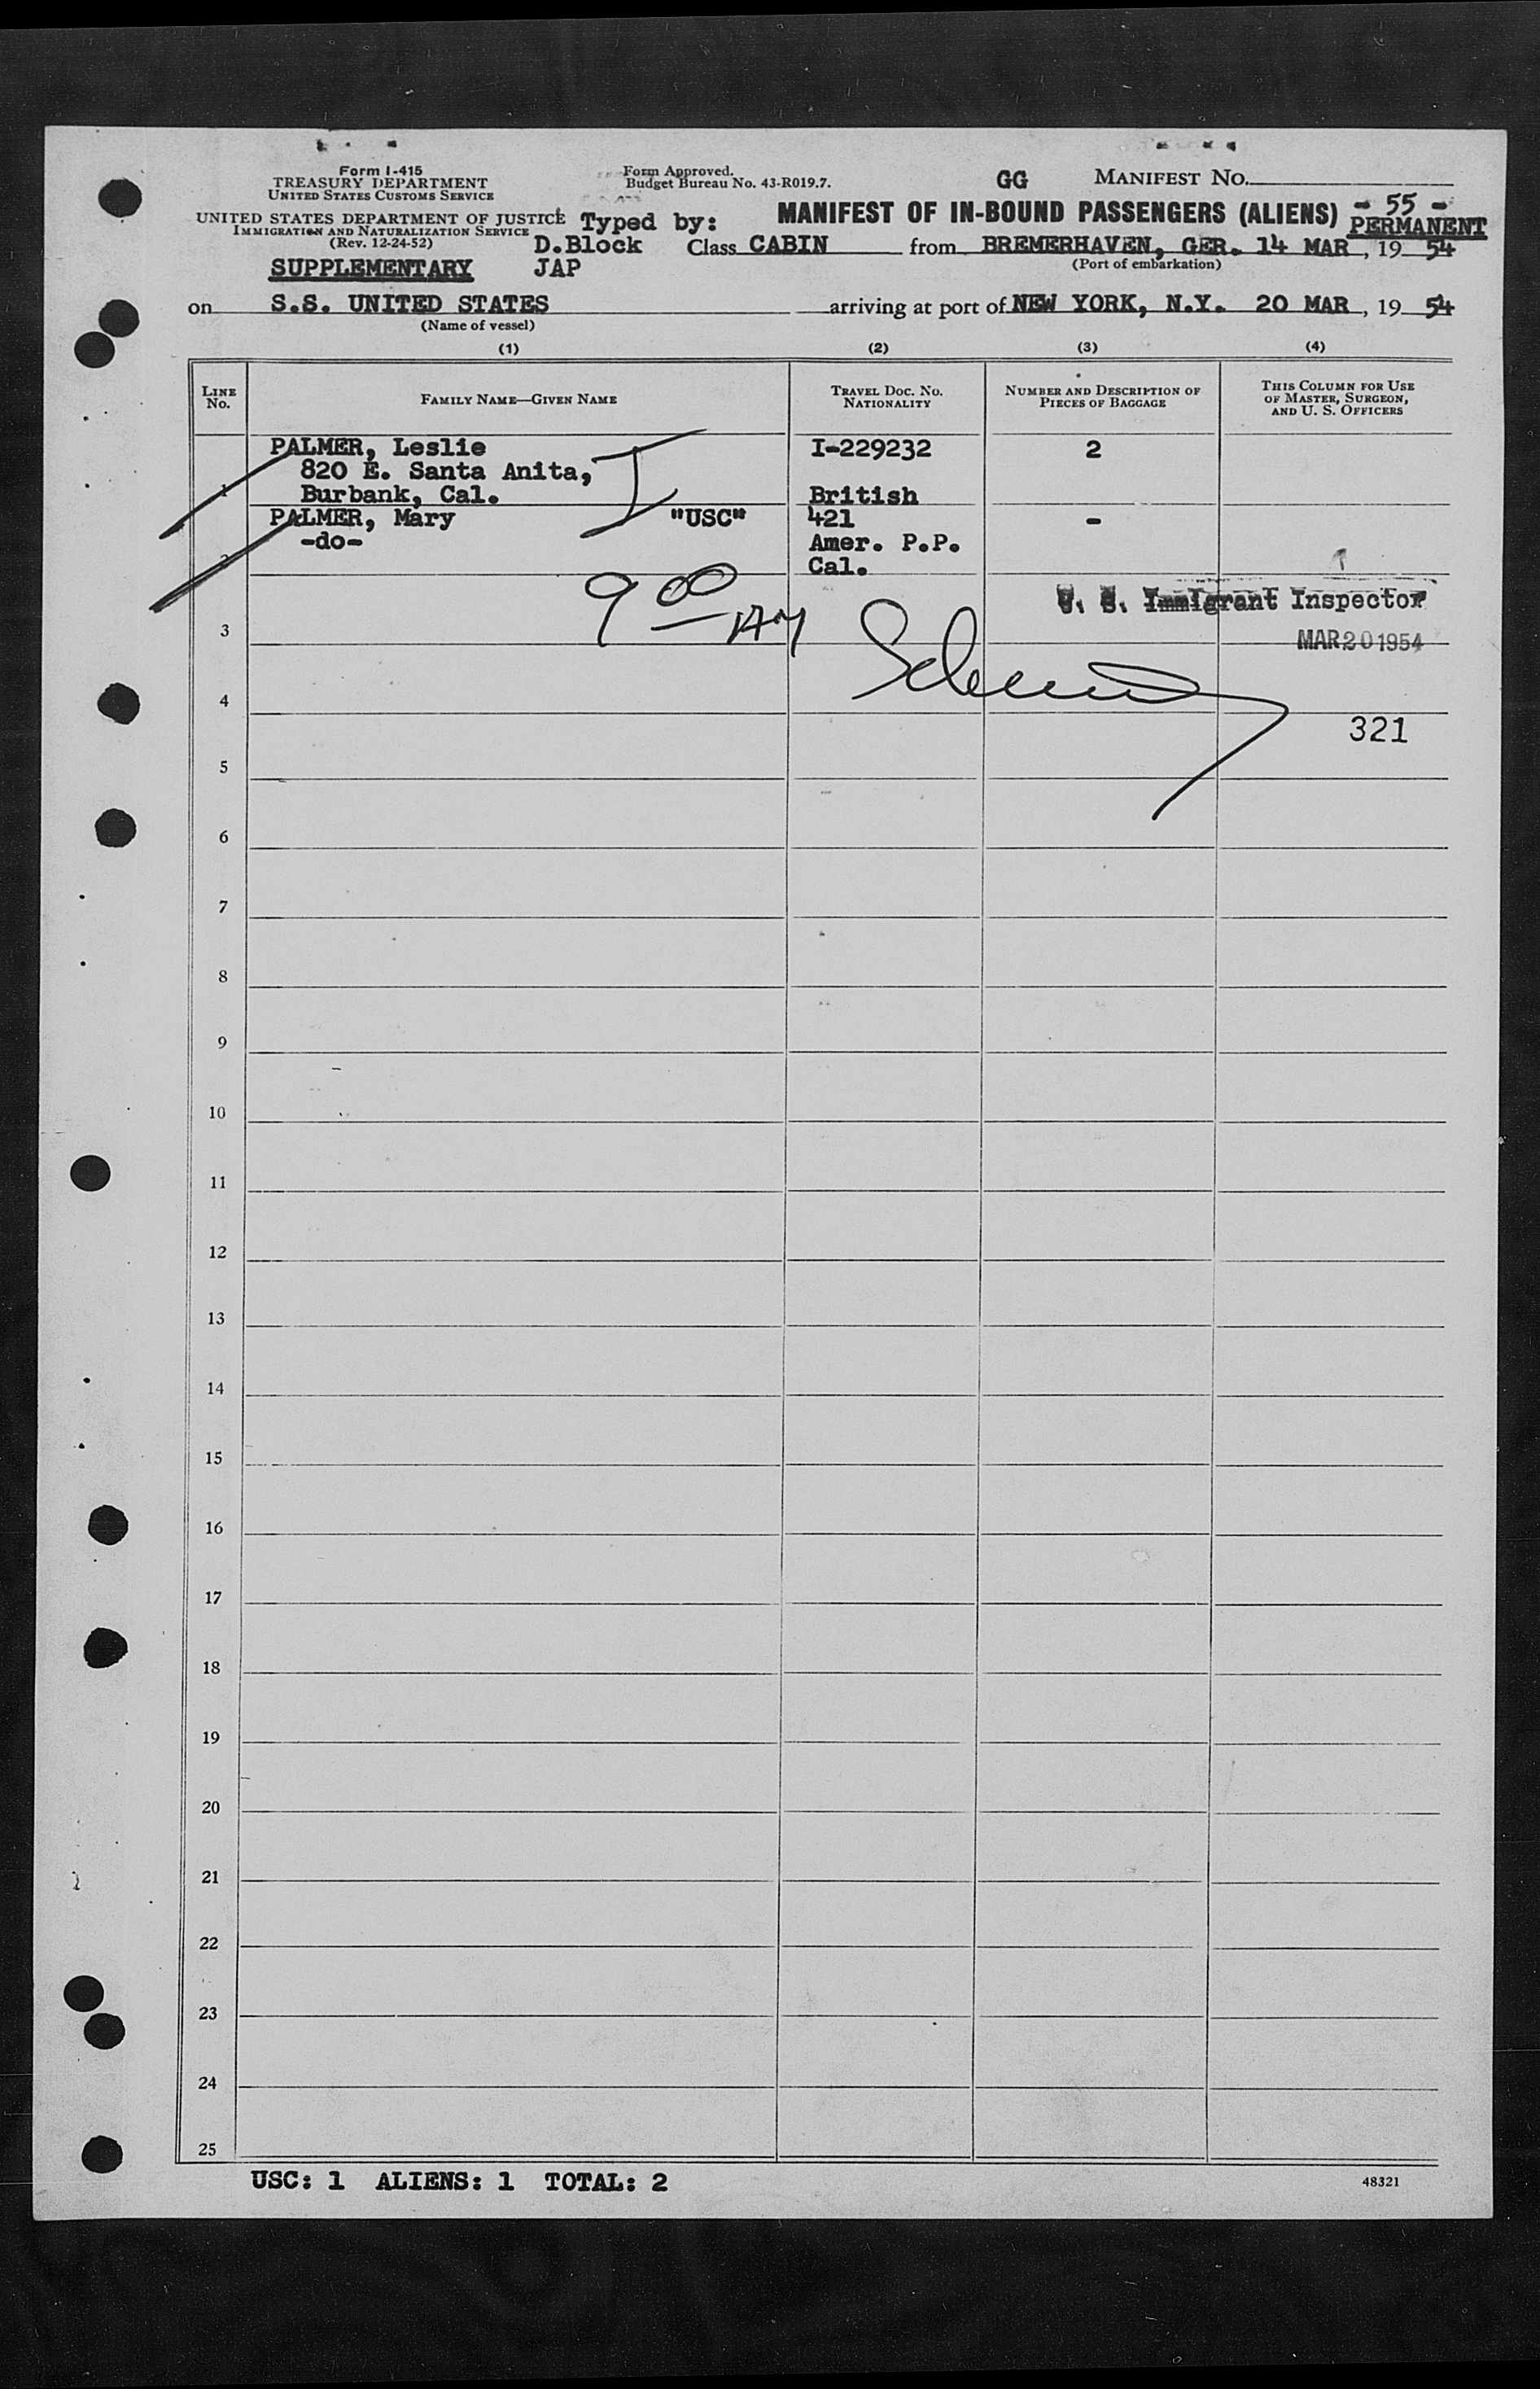 Form I-415
TREASURY DEPARTMENT
UNITED STATES CUSTOMS SERVICE
UNITED STATES DEPARTMENT OF JUSTICE
IMMIGRATION AND NATURALIZATION SERVICE
(Rev. 12-24-52)
Form Approved.
Budget Bureau No. 43-R019.7.
GG MANIFEST NO.
Typed by:
D.Block
JAP
MANIFEST OF IN-BOUND PASSENGERS (ALIENS)
- 55 -
PERMANENT
Class CABIN from BREMERHAVEN, GER. 14 MAR, 19 54
(Port of embarkation)
SUPPLEMENTARY
on S.S. UNITED STATES arriving at port of NEW YORK, N.Y. 20 MAR, 19 54
(Name of vessel)
(1) (2) (3) (4)
LINE NO.
FAMILY NAME—GIVEN NAME
TRAVEL DOC. NO. NATIONALITY
NUMBER AND DESCRIPTION OF PIECES OF BAGGAGE
THIS COLUMN FOR USE OF MASTER, SURGEON, AND U. S. OFFICERS
PALMER, Leslie I-229232 2
820 E. Santa Anita,
1 Burbank, Cal. British
I
PALMER, Mary "USC" 421 -
-do- Amer. P.P.
2 Cal.
9 00 AM
U. S. Immigrant Inspector
3
MAR 20 1954
4
321
5
6
7
8
9
10
11
12
13
14
15
16
17
18
19
20
21
22
23
24
25
USC: 1 ALIENS: 1 TOTAL: 2
48321